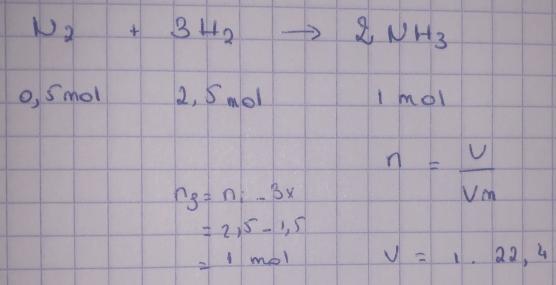 N2 + 3H2 → 2 NH3
0,5mol 2,5mol 1 mol
n = V / Vm
ng = ni - 3x
= 2,5 - 1,5
= 1 mol
V = 1 . 22,4